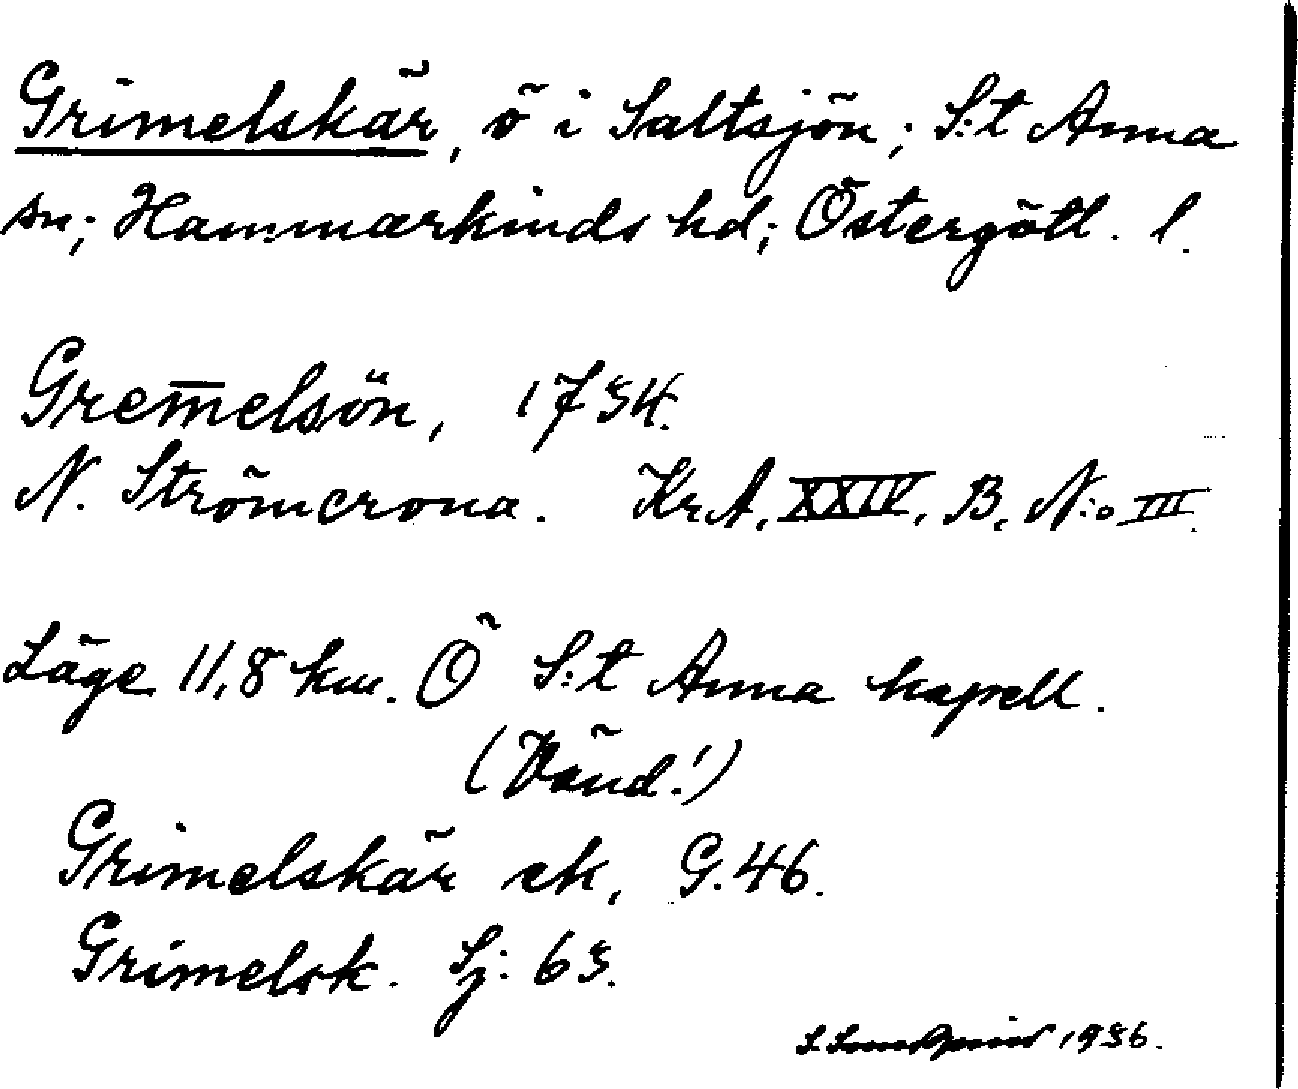 Grimelskär, ö i Saltsjön; S:t Anna
sn; Hammarkinds hd; Östergötl. l.
Grem̅elsön, 1734.
N. Strömcrona. KrA, XXIV, B, N:o III.
Läge 11,8 km. Ö S:t Anna kapell.
(Vänd!)
Grimelskär ek, G. 46.
Grimelsk. Sj: 63.
1936.